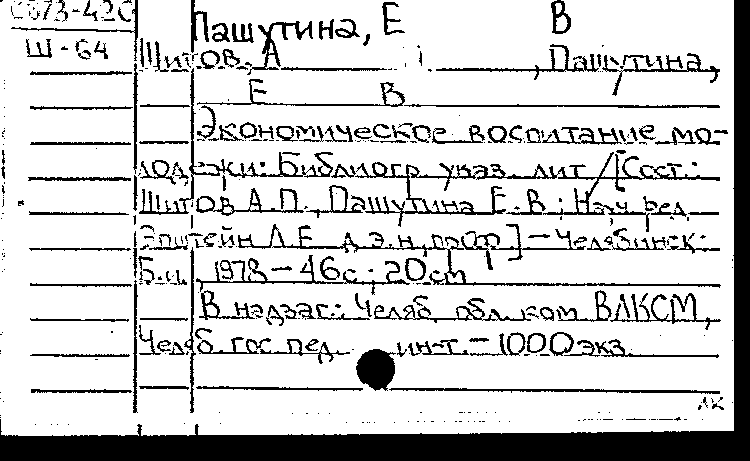 С673-42С
Пашутина, Е В
Ш-64
Шитов, А П, Пашутина,
Е В
Экономическое воспитание мо-
лодежи: Библиогр указ. лит / [Сост.:
Шитов А.П., Пашутина Е.В; Науч ред
Эпштейн Л.Е д.э.н, проф] – Челябинск:
Б.и., 1978 – 46с.; 20см
В надзаг.: Челяб. обл. ком ВЛКСМ,
Челяб. гос. пед. ин-т. – 1000 экз.
ЛК